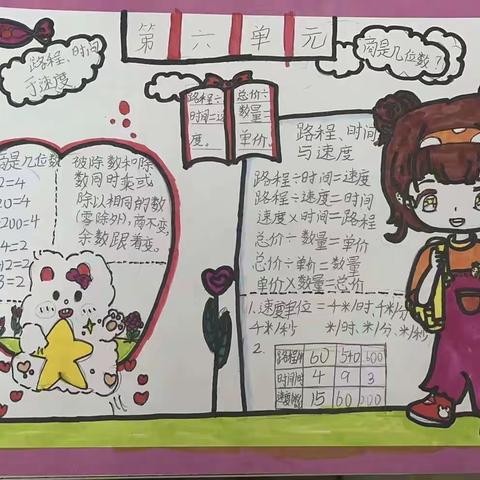 第六单元
路程、时间
于速度
商是几位数?
路程÷
时间=速
度。
总价÷
数量=
单价。
商是几位数
2=4
20=4
200=4
4=2
12=2
3=2
被除数和除
数同时乘或
除以相同的数
(零除外),商不变
余数跟着变。
路程、时间
与速度
路程÷时间=速度
路程÷速度=时间
速度×时间=路程
总价÷数量=单价
总价÷单价=数量
单价×数量=总价
1.速度单位=千米/时、千米/分
千米/秒 米/时、米/分、米/秒
2.
60 540 600
时间 4 9 3
15 60 200